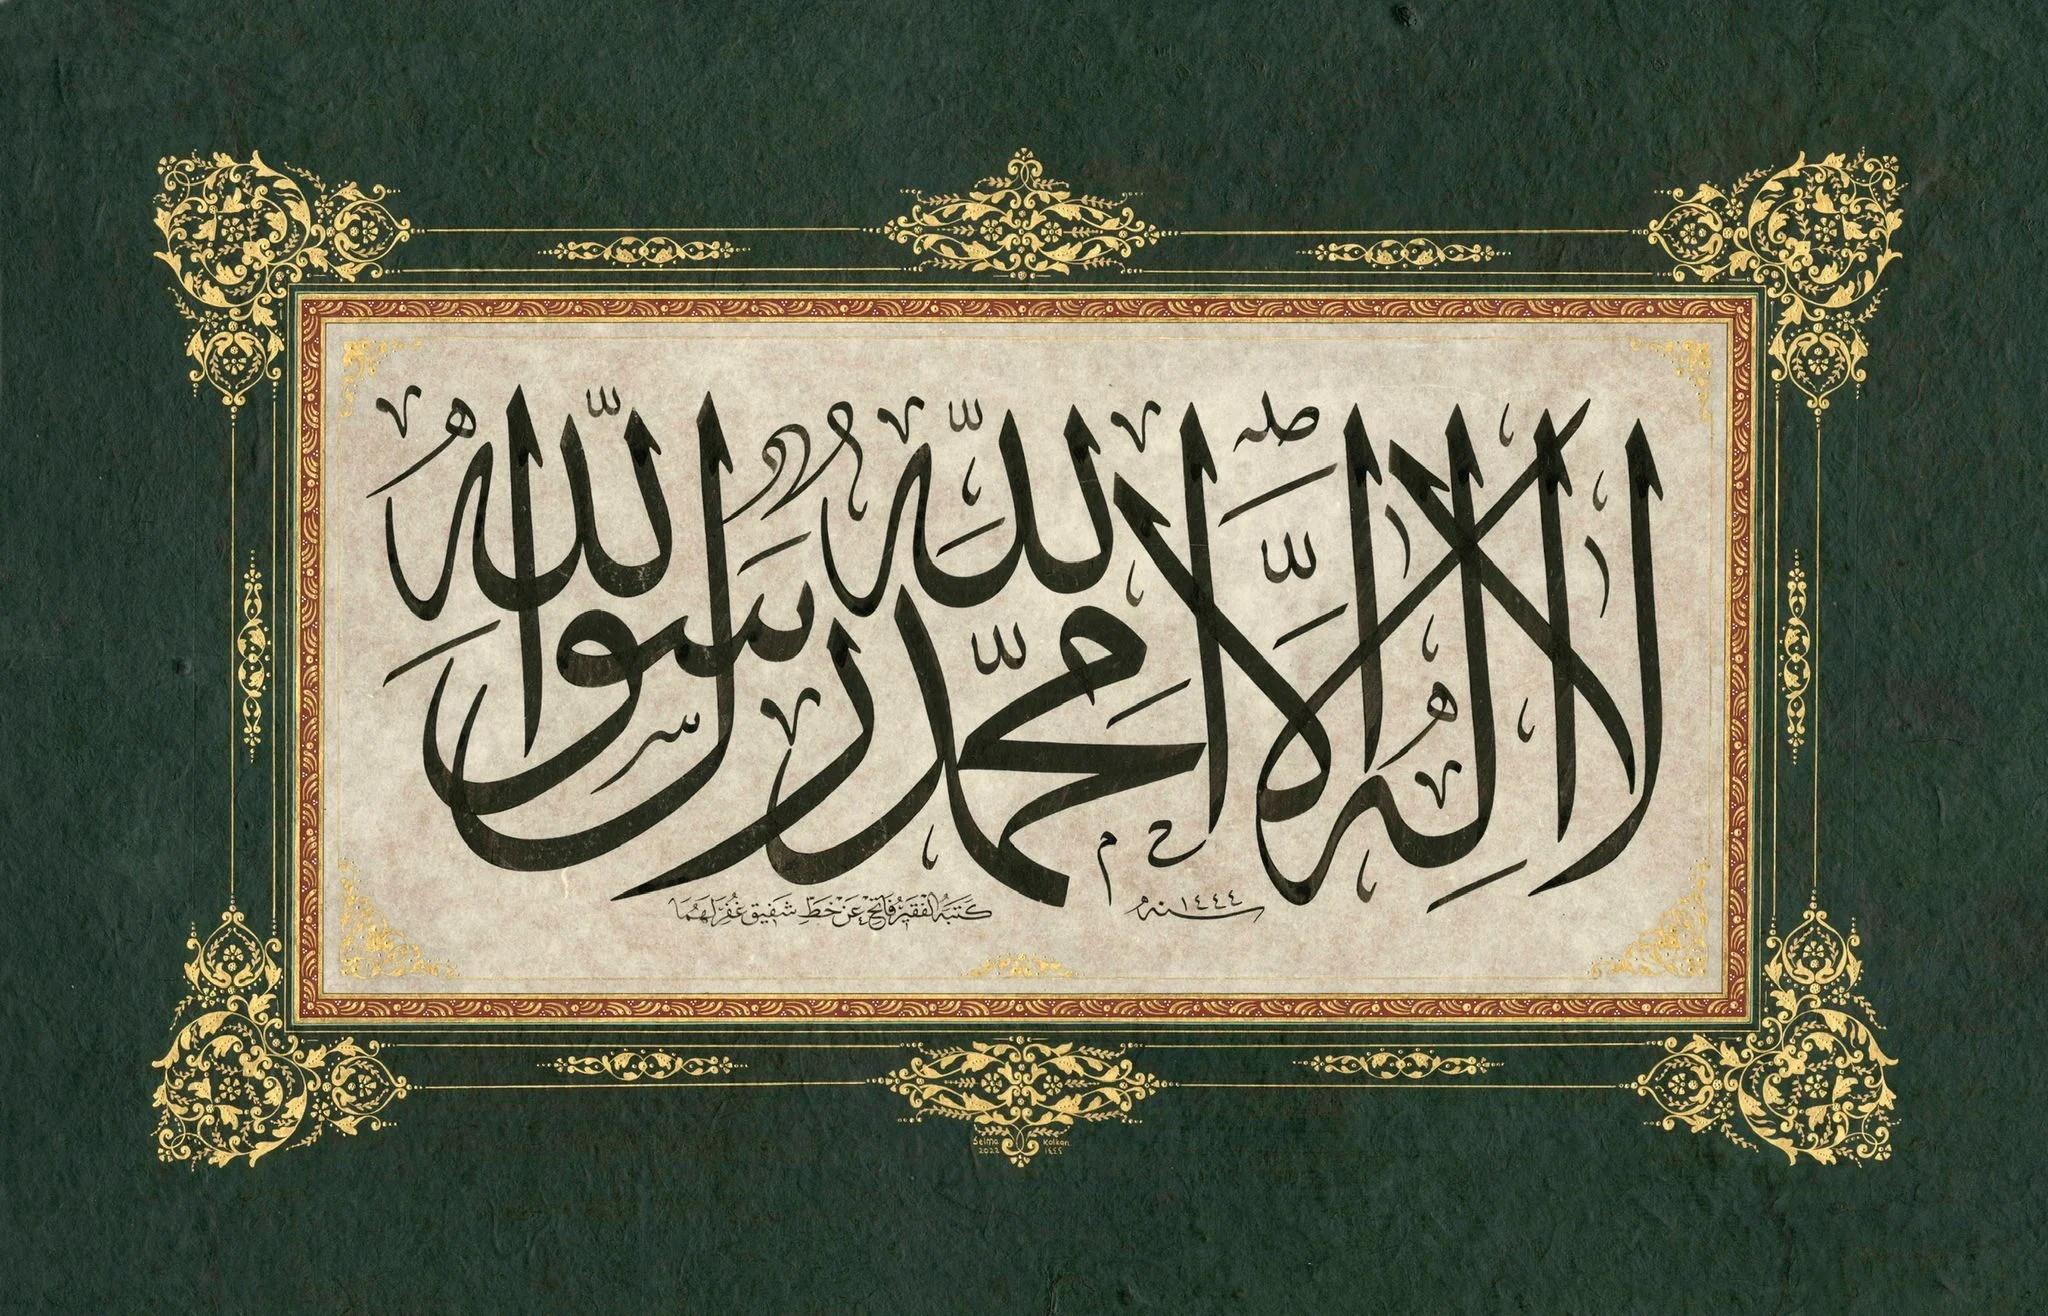 لا اله الا الله محمد رسول الله
سنه ١٤٤٤
كتبه الفقير فاتح عن خط شفيق غفر لهما
Selma Kolkan
2022 ١٤٤٤